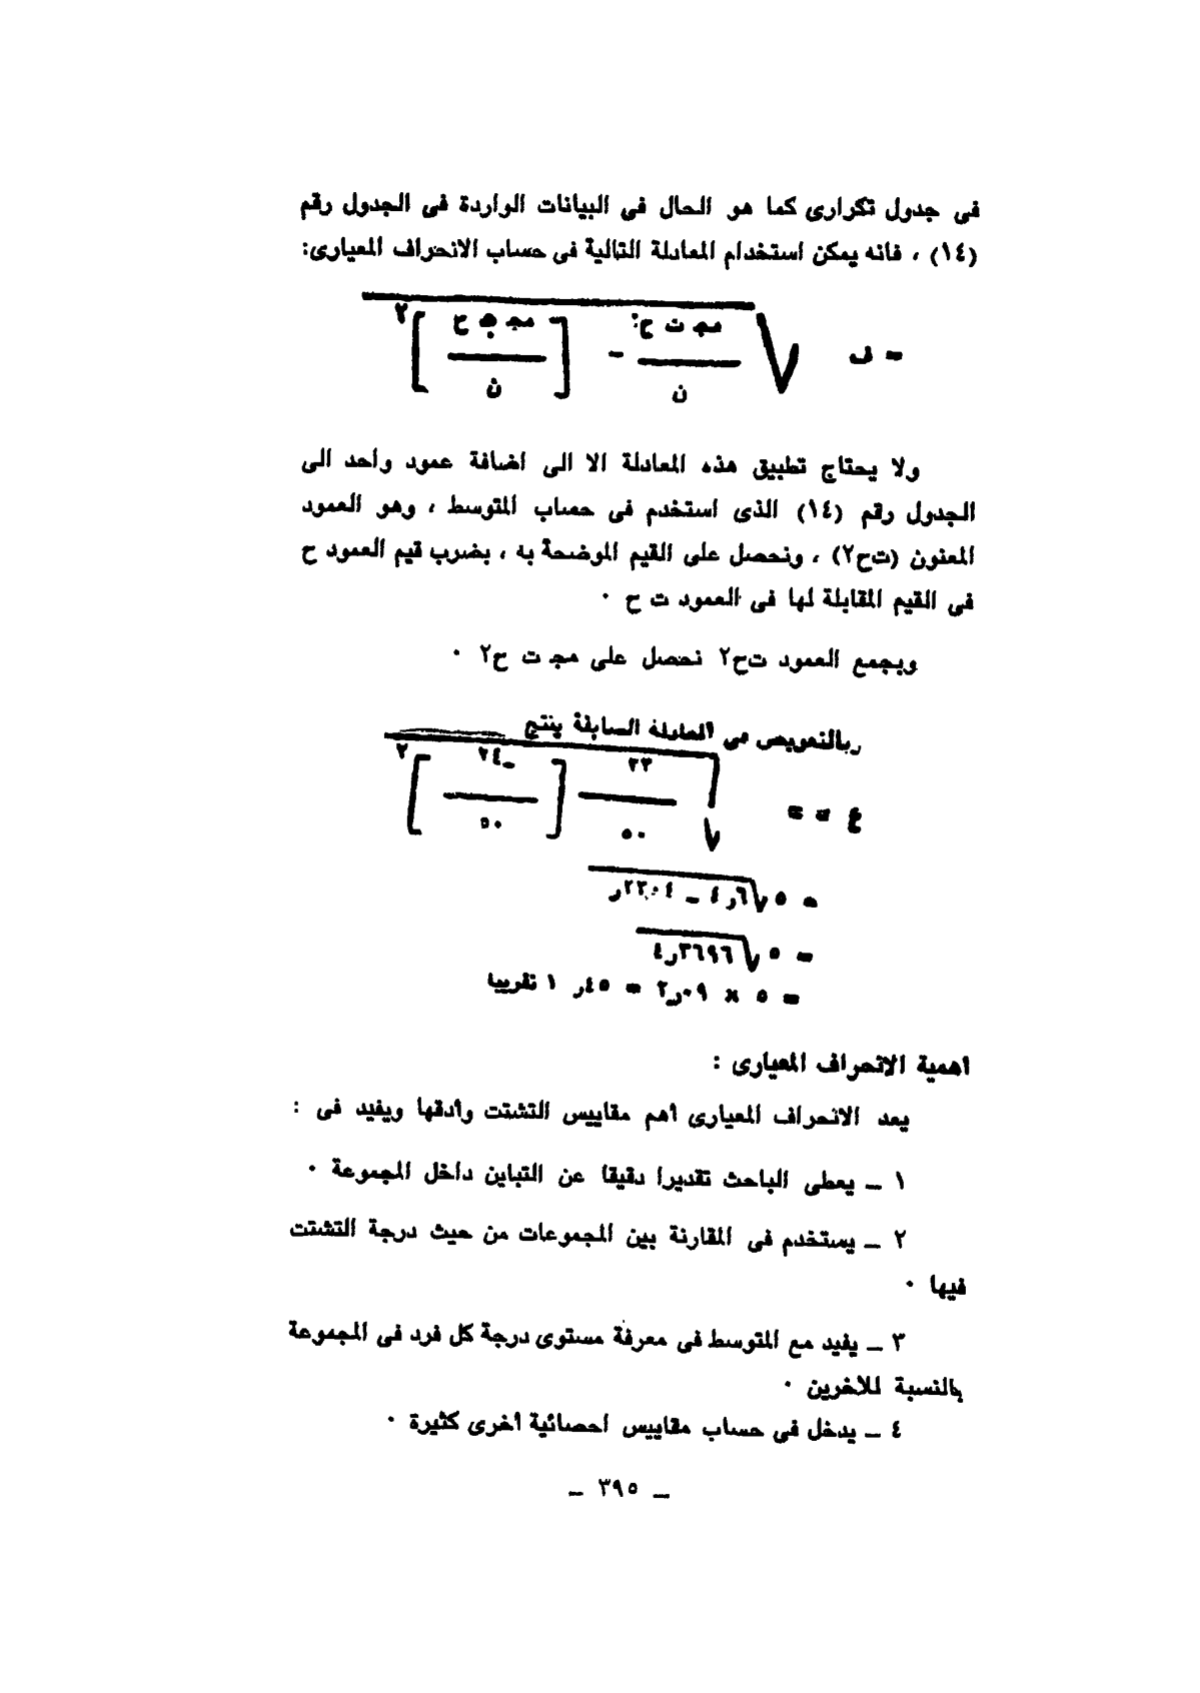 فى جدول تكرارى كما هو الحال فى البيانات الواردة فى الجدول رقم
(١٤) ، فانه يمكن استخدام المعادلة التالية فى حساب الانحراف المعيارى:
= ف √ مجـ ت ح٢ / ن - [ مجـ ح / ن ]٢
ولا يحتاج تطبيق هذه المعادلة الا الى اضافة عمود واحد الى
الجدول رقم (١٤) الذى استخدم فى حساب المتوسط ، وهو العمود
المعنون (تح٢) ، ونحصل على القيم الموضحة به ، بضرب قيم العمود ح
فى القيم المقابلة لها فى العمود ت ح ٠
وبجمع العمود تح٢ نحصل على مجـ ت ح٢ ٠
وبالتعويض فى المعادلة السابقة ينتج
ع = = √ ٢٣ / ٥٠ [ ـ٢٤ / ٥٠ ]٢
= ٥ √ ٦ر٤ ــ ٢٣٠٤ر
= ٥ √ ٣٦٩٦ر٤
= ٥ × ٠٩ر٢ = ٤٥ر ١ تقريبا
أهمية الانحراف المعيارى :
يعد الانحراف المعيارى أهم مقاييس التشتت وأدقها ويفيد فى :
١ ــ يعطى الباحث تقديرا دقيقا عن التباين داخل المجموعة ٠
٢ ــ يستخدم فى المقارنة بين المجموعات من حيث درجة التشتت
فيها ٠
٣ ــ يفيد مع المتوسط فى معرفة مستوى درجة كل فرد فى المجموعة
بالنسبة للآخرين ٠
٤ ــ يدخل فى حساب مقاييس احصائية أخرى كثيرة ٠
ــ ٣٩٥ ــ